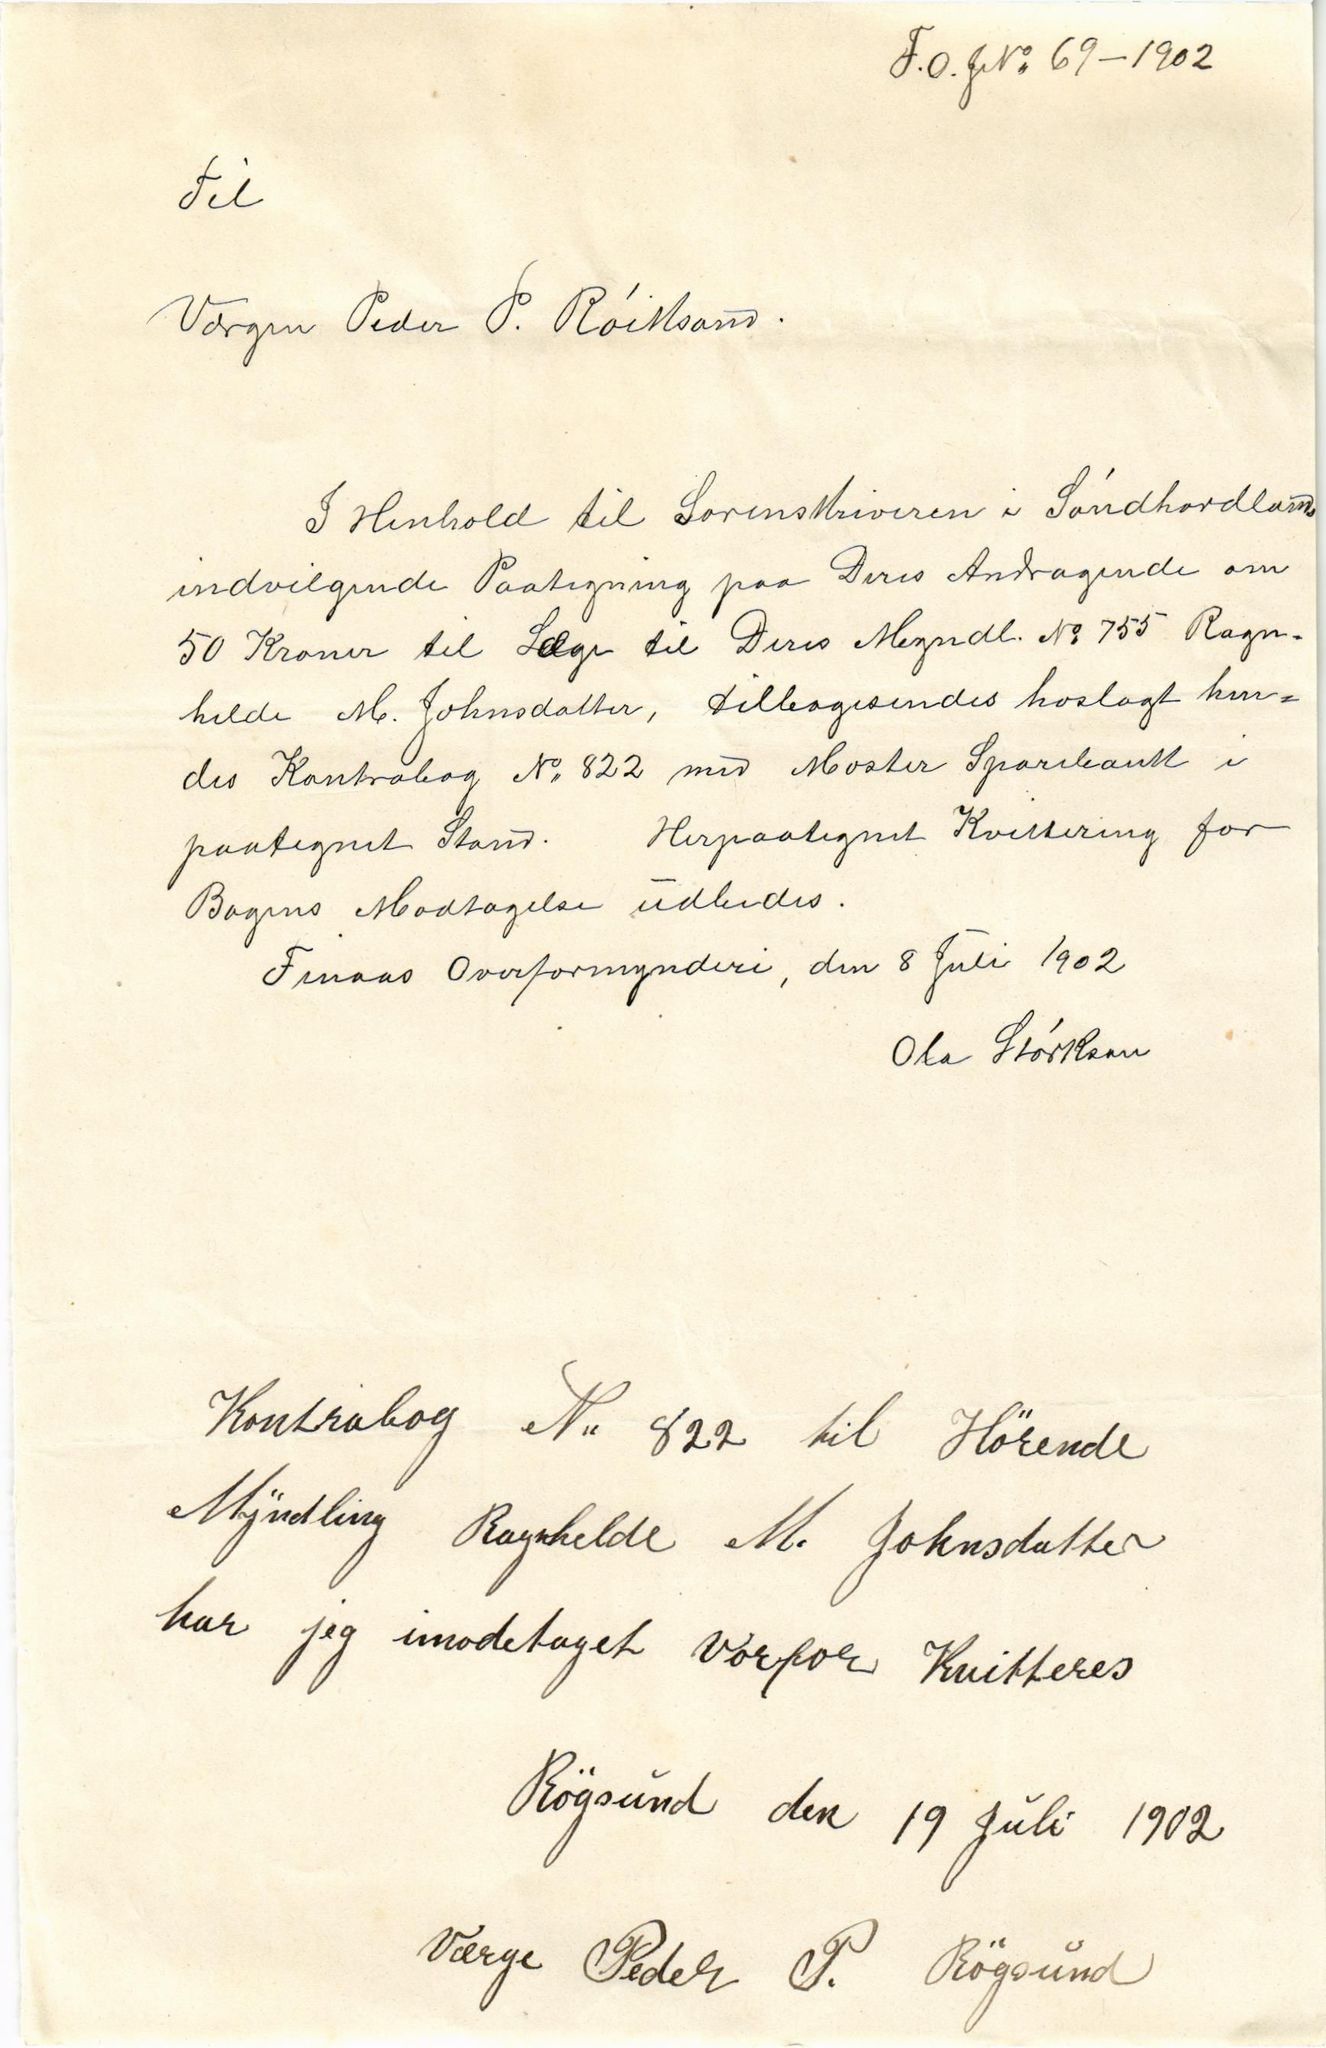 F.O.JNo 69-1902
Til
Værgen Peder P. Röiksand.
I Henhold til Sorenskriveren i Söndhordlands
indvilgende Paategning paa Deres Andragende om
50 Kroner til Læge til Deres Myndl. No 755 Ragn-
hilde M. Johnsdatter, tilbagesendes hoslagt hen-
des Kontrabog No. 822 med Moster Sparebank i
paategnet Stand. Herpaategnet Kvittering for
Bogens Modtagelse udbedes.
Finaas Overformynderi, den 8 Juli 1902
Ola Störkson
Kontrabog N. 822 til Hörende
Myndling Ragnhelde M. Johnsdatter
har jeg imodetaget Vorfor Kvitteres
Rögsund den 19 Juli 1902
Værge Peder P. Rögsund